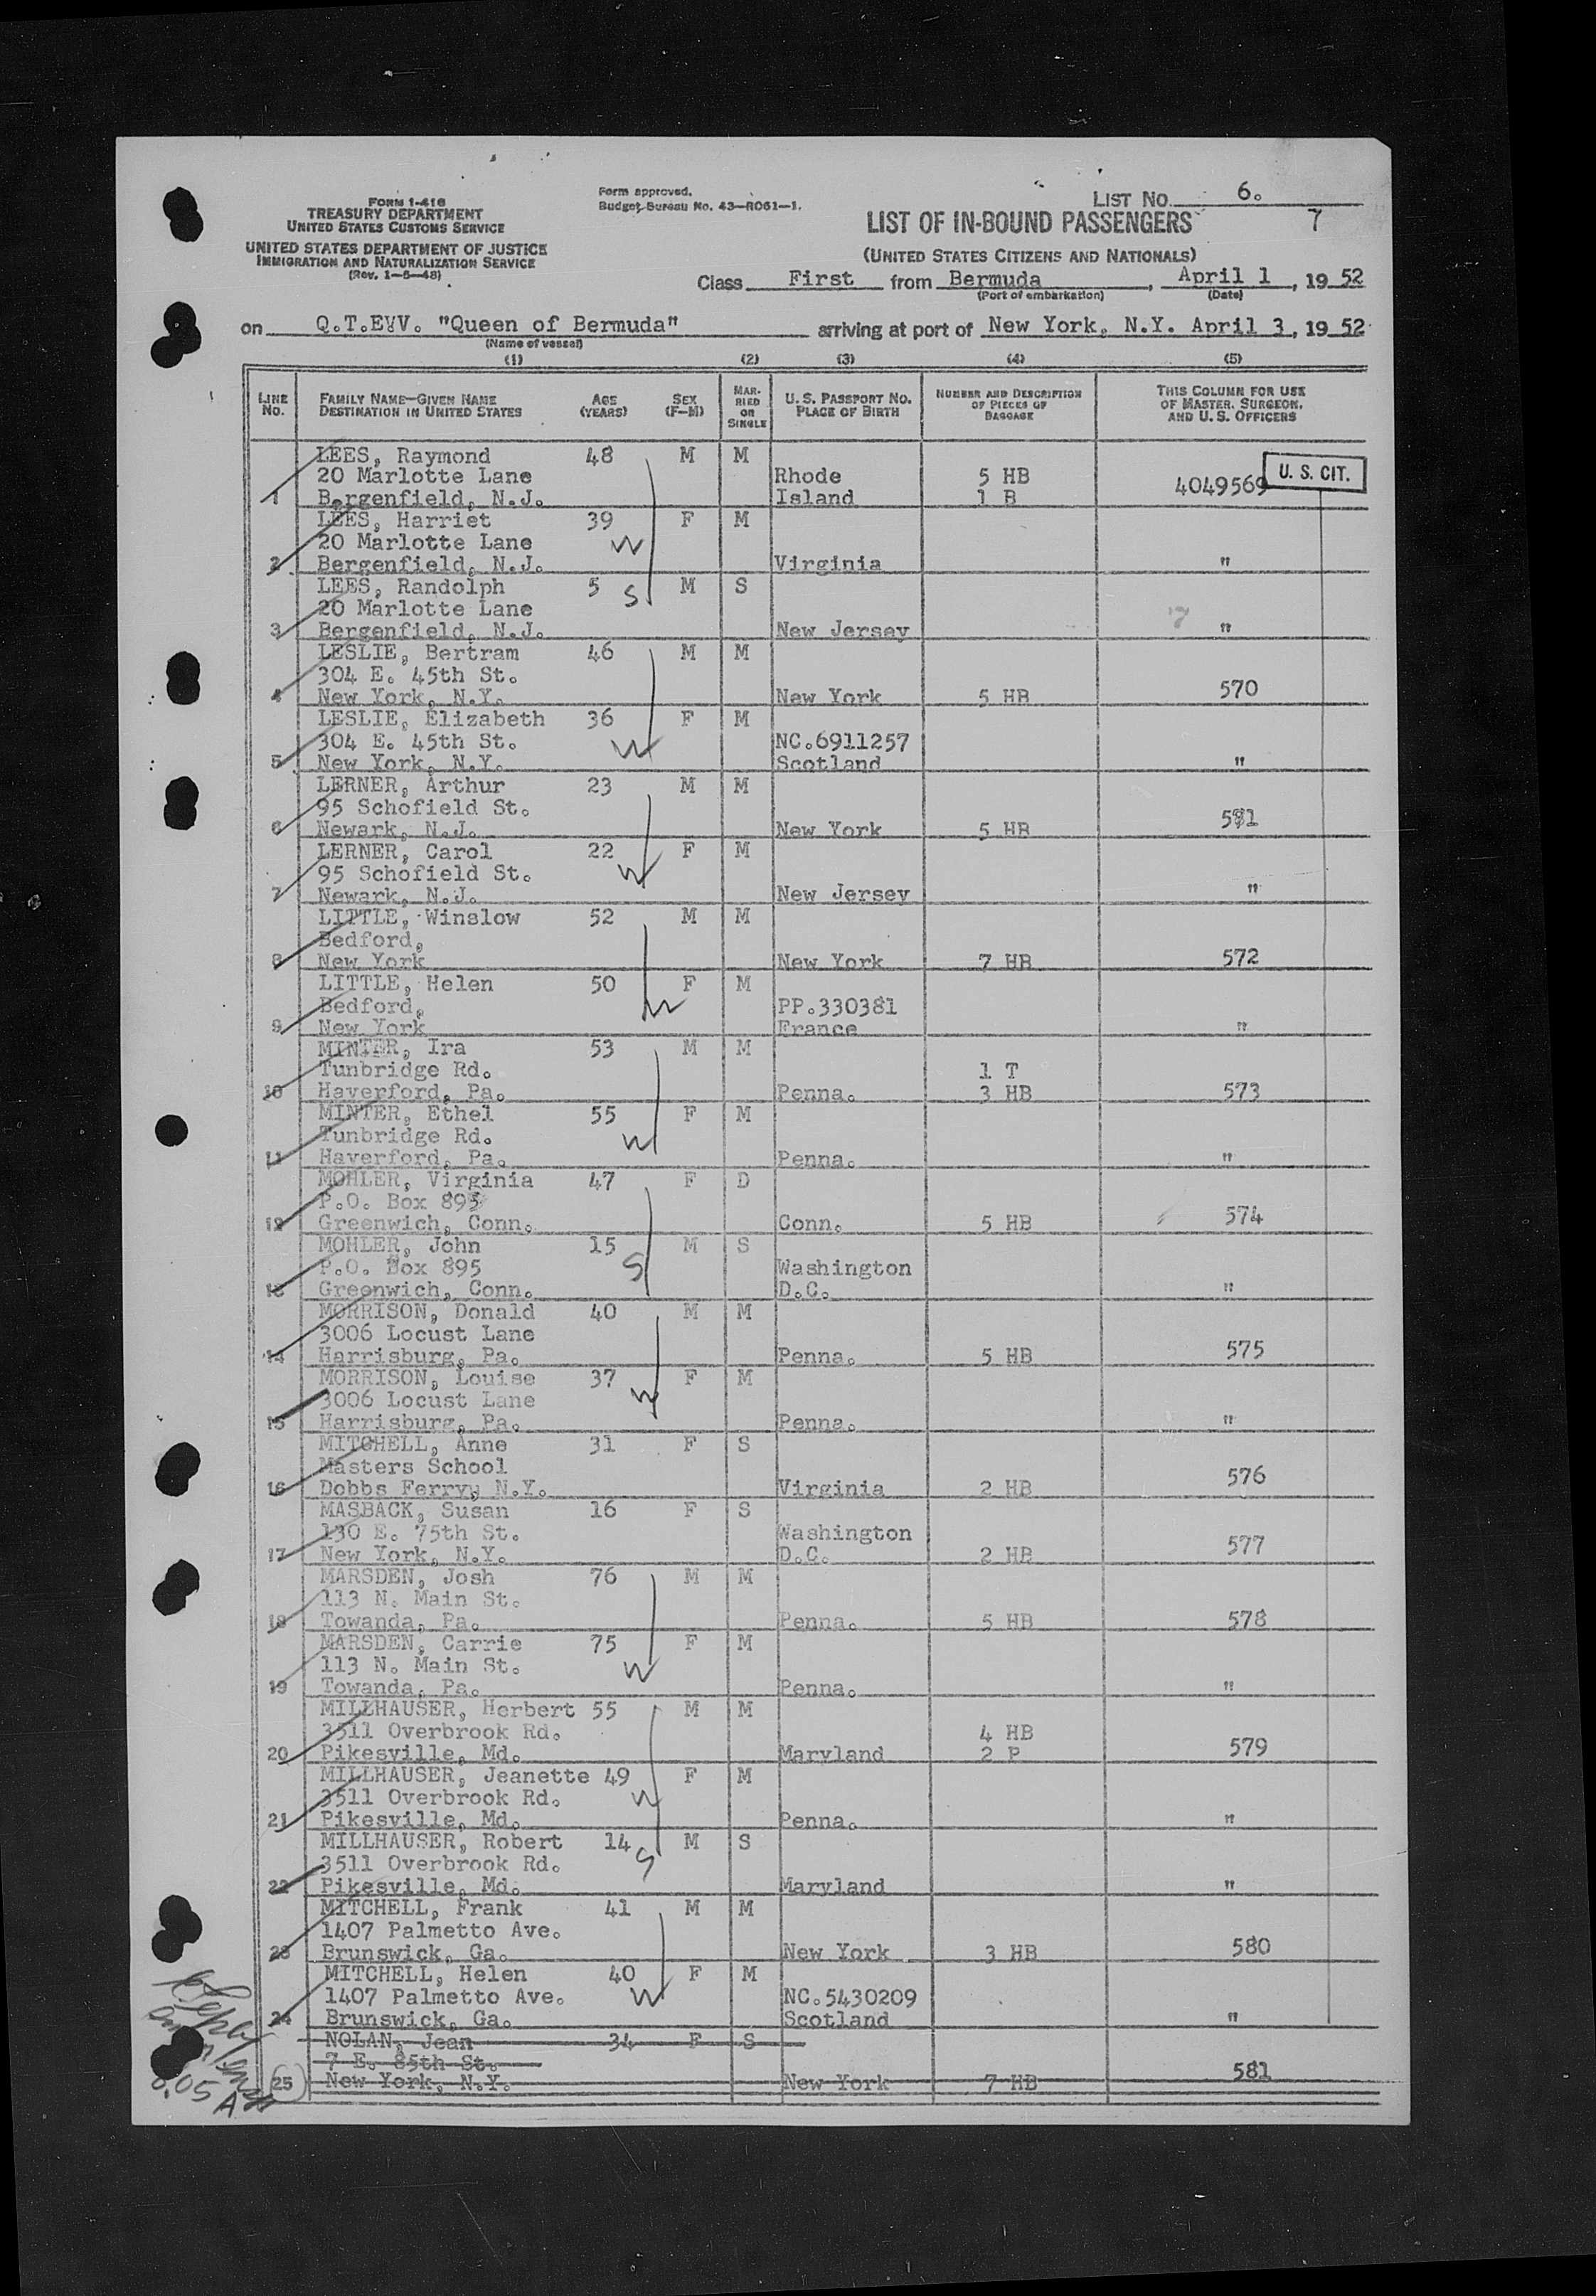 FORM I-416
TREASURY DEPARTMENT
UNITED STATES CUSTOMS SERVICE
UNITED STATES DEPARTMENT OF JUSTICE
IMMIGRATION AND NATURALIZATION SERVICE
(Rev. 1-5-48)
Form approved.
Budget Bureau No. 43-R061-1.
LIST NO. 6.
7
LIST OF IN-BOUND PASSENGERS
(UNITED STATES CITIZENS AND NATIONALS)
Class First from Bermuda, April 1, 1952
(Port of embarkation) (Date)
on Q.T.E.V. "Queen of Bermuda" arriving at port of New York, N.Y. April 3, 1952
(Name of vessel)
(1) (2) (3) (4) (5)
LINE NO. FAMILY NAME-GIVEN NAME DESTINATION IN UNITED STATES AGE (YEARS) SEX (F-M) MARRIED OR SINGLE U. S. PASSPORT NO. PLACE OF BIRTH NUMBER AND DESCRIPTION OF PIECES OF BAGGAGE THIS COLUMN FOR USE OF MASTER, SURGEON, AND U. S. OFFICERS
LEES, Raymond 48 M M
20 Marlotte Lane Rhode 5 HB 4049569 U. S. CIT.
1 Bergenfield, N.J. Island 1 B
LEES, Harriet 39 F M
20 Marlotte Lane W
2 Bergenfield, N.J. Virginia "
LEES, Randolph 5 S M S
20 Marlotte Lane 7
3 Bergenfield, N.J. New Jersey "
LESLIE, Bertram 46 M M
304 E. 45th St.
4 New York, N.Y. New York 5 HB 570
LESLIE, Elizabeth 36 F M
304 E. 45th St. W NC.6911257
5 New York, N.Y. Scotland "
LERNER, Arthur 23 M M
95 Schofield St.
6 Newark, N.J. New York 5 HB 571
LERNER, Carol 22 F M
95 Schofield St. W
7 Newark, N.J. New Jersey "
LITTLE, Winslow 52 M M
Bedford,
8 New York New York 7 HB 572
LITTLE, Helen 50 F M
Bedford, W PP.330381
9 New York France "
MINTER, Ira 53 M M
Tunbridge Rd. 1 T
10 Haverford, Pa. Penna. 3 HB 573
MINTER, Ethel 55 F M
Tunbridge Rd. W
11 Haverford, Pa. Penna. "
MOHLER, Virginia 47 F D
P.O. Box 895
12 Greenwich, Conn. Conn. 5 HB 574
MOHLER, John 15 M S
P.O. Box 895 S Washington
13 Greenwich, Conn. D.C. "
MORRISON, Donald 40 M M
3006 Locust Lane
14 Harrisburg, Pa. Penna. 5 HB 575
MORRISON, Louise 37 F M
3006 Locust Lane W
15 Harrisburg, Pa. Penna. "
MITCHELL, Anne 31 F S
Masters School
16 Dobbs Ferry, N.Y. Virginia 2 HB 576
MASBACK, Susan 16 F S
130 E. 75th St. Washington
17 New York, N.Y. D.C. 2 HB 577
MARSDEN, Josh 76 M M
113 N. Main St.
18 Towanda, Pa. Penna. 5 HB 578
MARSDEN, Carrie 75 F M
113 N. Main St. W
19 Towanda, Pa. Penna. "
MILLHAUSER, Herbert 55 M M
3511 Overbrook Rd. 4 HB
20 Pikesville, Md. Maryland 2 P 579
MILLHAUSER, Jeanette 49 F M
3511 Overbrook Rd. W
21 Pikesville, Md. Penna. "
MILLHAUSER, Robert 14 M S
3511 Overbrook Rd. S
22 Pikesville, Md. Maryland "
MITCHELL, Frank 41 M M
1407 Palmetto Ave.
23 Brunswick, Ga. New York 3 HB 580
MITCHELL, Helen 40 F M
1407 Palmetto Ave. W NC.5430209
24 Brunswick, Ga. Scotland "
NOLAN, Jean 34 F S
7 E. 85th St.
25 New York, N.Y. New York 7 HB 581